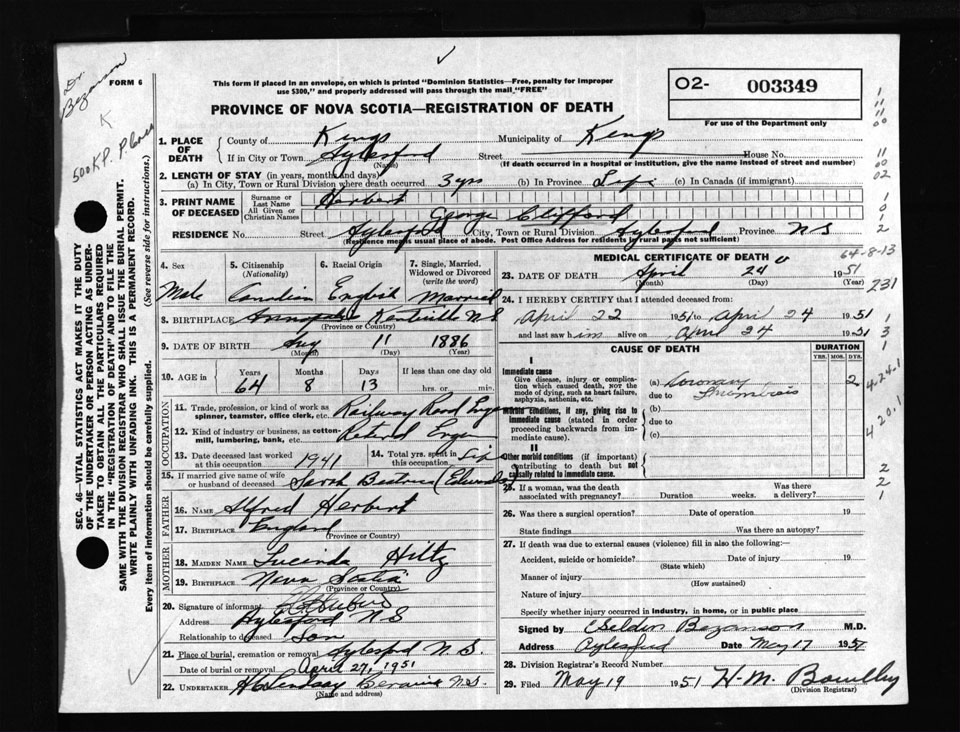 Dr Bezanson
FORM 6
K
500 K.P.
This form if placed in an envelope, on which is printed "Dominion Statistics—Free, penalty for improper
use $300," and properly addressed will pass through the mail "FREE"
O2- 003349
For use of the Department only
PROVINCE OF NOVA SCOTIA—REGISTRATION OF DEATH
1. PLACE OF DEATH County of Kings Municipality of Kings
If in City or Town Aylesford Street House No.
(Name) (If death occurred in a hospital or institution, give the name instead of street and number)
2. LENGTH OF STAY (in years, months and days)
(a) In City, Town or Rural Division where death occurred 3 yrs (b) In Province Life (c) In Canada (if immigrant)
3. PRINT NAME OF DECEASED Surname or Last Name Herbert
All Given or Christian Names George Clifford
RESIDENCE No. Street Aylesford City, Town or Rural Division Aylesford Province N S
(Residence means usual place of abode. Post Office Address for residents in rural parts not sufficient)
4. Sex Male
5. Citizenship (Nationality) Canadian
6. Racial Origin English
7. Single, Married, Widowed or Divorced (write the word) Married
8. BIRTHPLACE Kentville N.S.
(Province or Country)
9. DATE OF BIRTH Aug 11 1886
(Month) (Day) (Year)
10. AGE in Years 64 Months 8 Days 13 If less than one day old hrs. or min.
OCCUPATION
11. Trade, profession, or kind of work as spinner, teamster, office clerk, etc. Railway Road
12. Kind of industry or business, as cotton-mill, lumbering, bank, etc. Retired
13. Date deceased last worked at this occupation 1941
14. Total yrs. spent in this occupation Life
15. If married give name of wife or husband of deceased Sarah Beatrice
FATHER
16. Name Alfred Herbert
17. Birthplace England
(Province or Country)
MOTHER
18. MAIDEN NAME Lucinda Hiltz
19. BIRTHPLACE Nova Scotia
(Province or Country)
20. Signature of informant Herbert
Address Aylesford N S
Relationship to deceased Son
21. Place of burial, cremation or removal Aylesford N.S.
Date of burial or removal April 27, 1951
22. UNDERTAKER Lindsay Berwick N.S.
(Name and address)
MEDICAL CERTIFICATE OF DEATH
64-8-13
23. DATE OF DEATH April 24 1951
(Month) (Day) (Year)
231
24. I HEREBY CERTIFY that I attended deceased from:
April 22 1951 to April 24 1951
and last saw him alive on April 24 1951
CAUSE OF DEATH DURATION
YRS. MOS. DYS.
I
Immediate cause
Give disease, injury or complication which caused death, NOT the mode of dying, such as heart failure, asphyxia, asthenia, etc.
(a) Coronary 2
due to Thrombosis
Morbid conditions, if any, giving rise to immediate cause (stated in order proceeding backwards from immediate cause).
(b)
due to
(c)
4-24-1
4 20 1
II
Other morbid conditions (if important) contributing to death but not causally related to immediate cause.
25. If a woman, was the death associated with pregnancy? Duration weeks. Was there a delivery?
26. Was there a surgical operation? Date of operation 19
State findings Was there an autopsy?
27. If death was due to external causes (violence) fill in also the following:—
Accident, suicide or homicide? Date of injury 19
(State which)
Manner of injury
(How sustained)
Nature of injury
Specify whether injury occurred in industry, in home, or in public place
Signed by Bezanson M.D.
Address Aylesford Date May 17 1951
28. Division Registrar's Record Number
29. Filed May 19 1951 H. M.
(Division Registrar)
SEC. 46—VITAL STATISTICS ACT MAKES IT THE DUTY
OF THE UNDERTAKER OR PERSON ACTING AS UNDER-
TAKER TO OBTAIN ALL THE PARTICULARS REQUIRED
IN THE "REGISTRATION OF DEATH" AND TO FILE THE
SAME WITH THE DIVISION REGISTRAR WHO SHALL ISSUE THE BURIAL PERMIT.
WRITE PLAINLY WITH UNFADING INK. THIS IS A PERMANENT RECORD.
Every item of information should be carefully supplied. (See reverse side for instructions.)